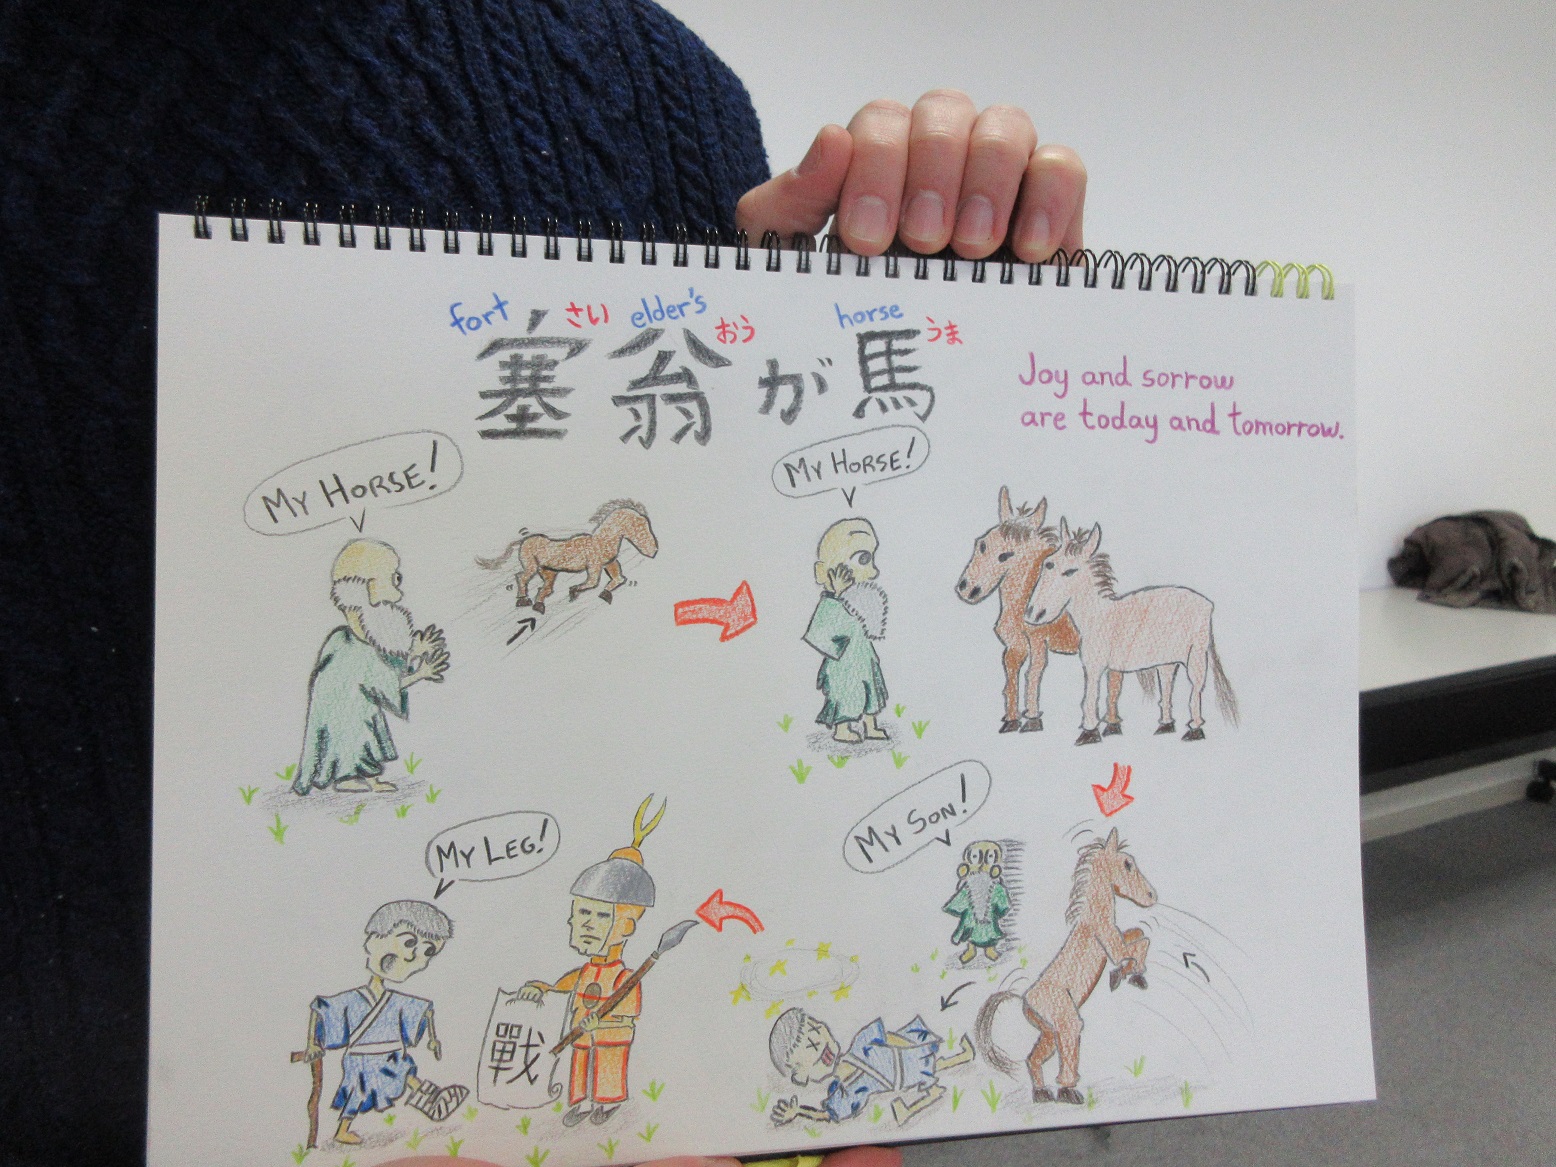 fort さい elder's おう horse うま
塞翁が馬
Joy and sorrow
are today and tomorrow.
MY HORSE!
MY HORSE!
MY SON!
MY LEG!
戰